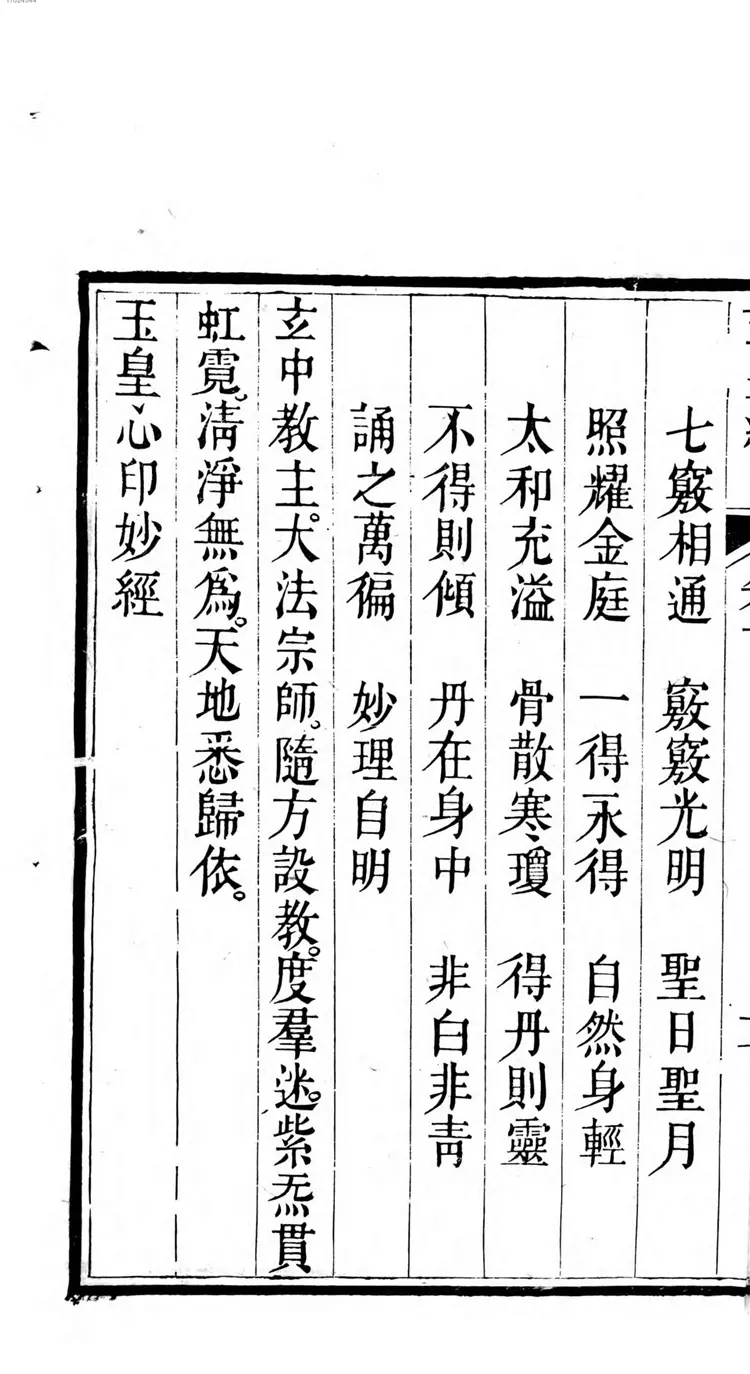 七竅相通　竅竅光明　聖日聖月
照耀金庭　一得永得　自然身輕
太和充溢　骨散寒瓊　得丹則靈
不得則傾　丹在身中　非白非青
誦之萬徧　妙理自明
玄中教主。大法宗師。隨方設教。度羣迷。紫炁貫
虹霓。清淨無爲。天地悉歸依。
玉皇心印妙經